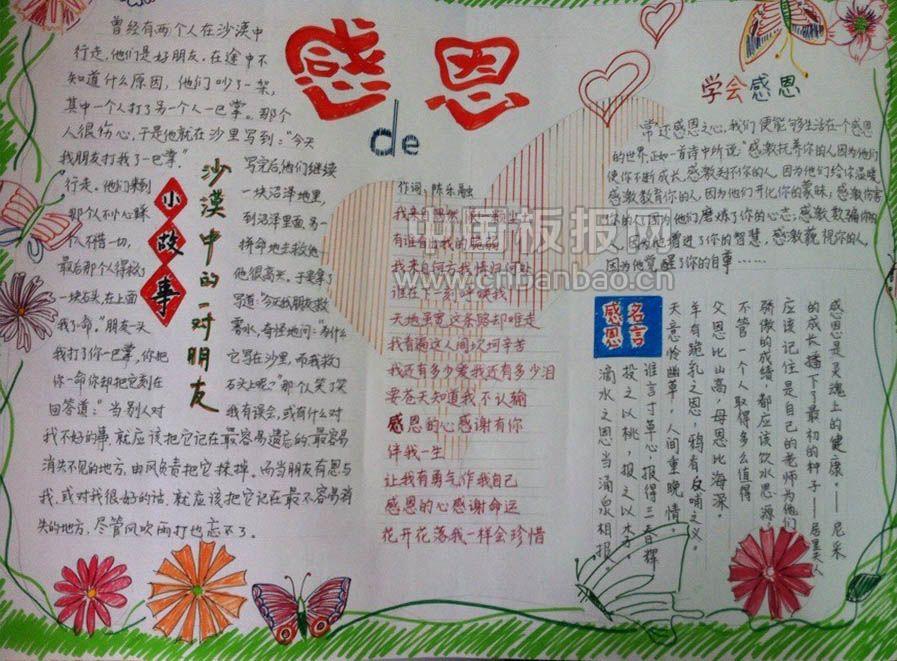 感恩
de
曾经有两个人在沙漠中
行走,他们是好朋友,在途中不
知道什么原因,他们吵了一架,
其中一个人打了另一个人一巴掌。那个
人很伤心,于是他就在沙里写到:"今天
我朋友打我了一巴掌。"
写完后他们继续
行走。他们来到
一块沼泽地里,
那个人不小心踩
到沼泽里面,另一
个人不惜一切,
拼命地去救他
最后那个人得救了
他很高兴。于是拿了
一块石头,在上面
写道:"今天我朋友救
我了命。"朋友一头
雾水,奇怪地问:"为什么
我打你一巴掌,你把
它写在沙里,而我救了
你一命你却把它刻在
石头上呢?"那个人笑了笑
回答道:"当别人对
我有误会,或有什么对
我不好的事,就应该把它记在最容易遗忘的,最容易
消失不见的地方,由风负责把它抹掉。而当朋友有恩与
我,或对我很好的话,就应该把它记在最不容易消
失的地方,尽管风吹雨打也忘不了。
小故事
沙漠中的一对朋友
作词:陈乐融
我来
有谁看出我的脆弱
我来自何方我情归何处
谁在下一刻呼唤我
天地虽宽这条路却难走
我看遍这人间坎坷辛苦
我还有多少爱我还有多少泪
要苍天知道我不认输
感恩的心感谢有你
伴我一生
让我有勇气作我自己
感恩的心感谢命运
花开花落我一样会珍惜
学会感恩
常还感恩之心,我们便能够生活在一个感恩
的世界,正如一首诗中所说"感激抚养你的人因为他们
使你不断成长,感激关怀你的人,因为他们给你温暖
感激教育你的人,因为他们开化你的蒙昧,感激伤害
你的人因为他们磨炼了你的心志;感激欺骗你的
人,因为他增进了你的智慧,感激藐视你的人,
因为他觉醒了你的自尊……
感恩名言
感恩是灵魂上的健康。——尼采
的成长播下了最初的种子——居里夫人
应该记住是自己的老师为他们
骄傲的成绩,都应该饮水思源,
不管一个人取得多么值得
父恩比山高,母恩比海深。
羊有跪乳之恩,鸦有反哺之义。
天意怜幽草,人间重晚情
谁言寸草心,报得三春辉
投之以桃,报之以李
滴水之恩当涌泉相报。
中国板报网
www.cnbanbao.cn